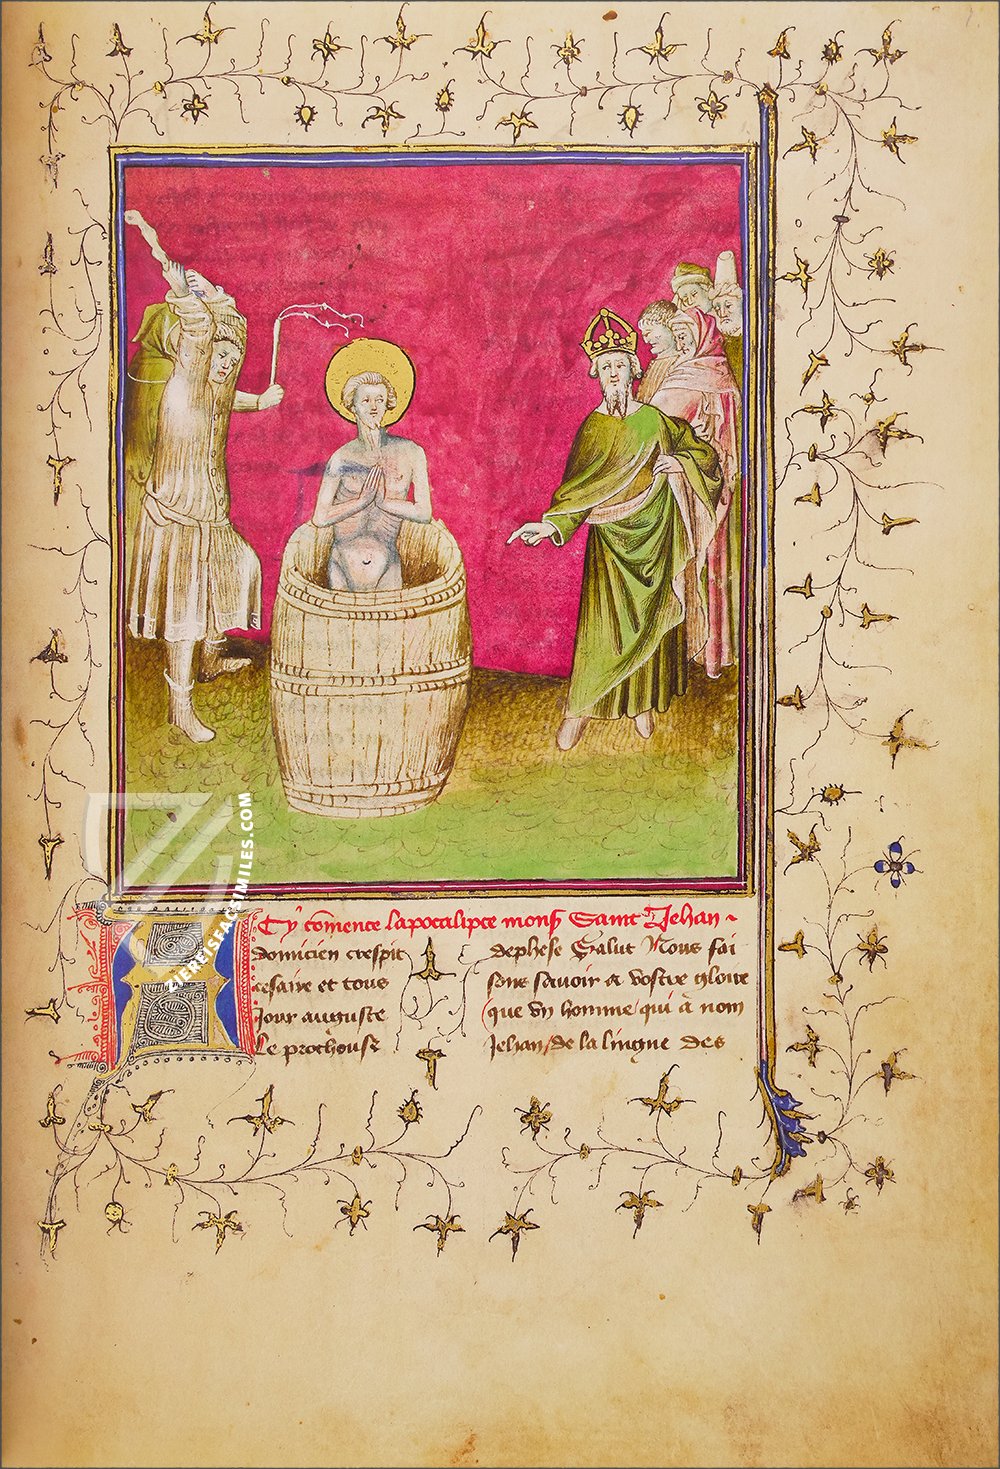 Cy comence lapocalipce mons Saint Jehan
A domicien crespit
cesaire et tous
jour auguste
Le prochous
dephese Salut Nous fai
sons savoir a vostre gloire
que vn homme qui à nom
jehan de la lingne des
ZIEREISFACSIMILES.COM